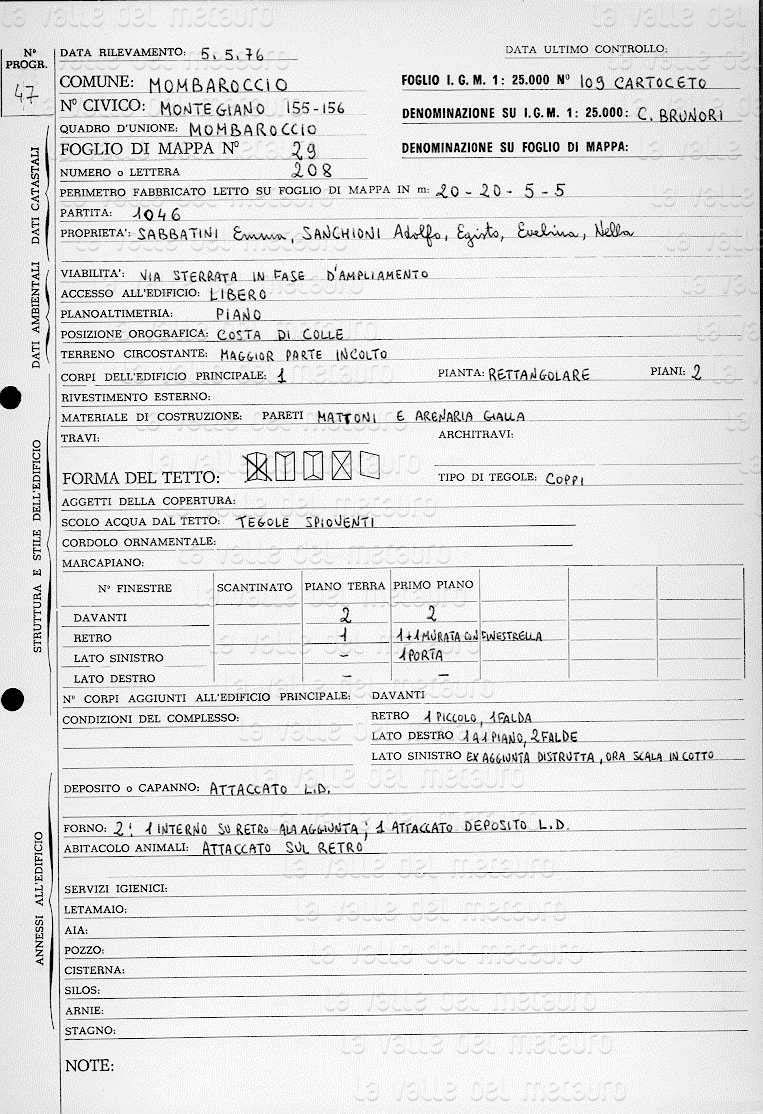 Nº PROGR.
47
DATA RILEVAMENTO: 5.5.76
DATA ULTIMO CONTROLLO:
COMUNE: MOMBAROCCIO
FOGLIO I. G. M. 1: 25.000 Nº 109 CARTOCETO
Nº CIVICO: MONTEGIANO 155-156
DENOMINAZIONE SU I.G.M. 1: 25.000: C. BRUNORI
QUADRO D'UNIONE: MOMBAROCCIO
FOGLIO DI MAPPA Nº 29
DENOMINAZIONE SU FOGLIO DI MAPPA:
NUMERO o LETTERA 208
PERIMETRO FABBRICATO LETTO SU FOGLIO DI MAPPA IN m: 20-20-5-5
PARTITA: 1046
PROPRIETA': SABBATINI Emma, SANCHIONI Adolfo, Egisto, Evelina, Nella
DATI CATASTALI
VIABILITA': VIA STERRATA IN FASE D'AMPLIAMENTO
ACCESSO ALL'EDIFICIO: LIBERO
PLANOALTIMETRIA: PIANO
POSIZIONE OROGRAFICA: COSTA DI COLLE
TERRENO CIRCOSTANTE: MAGGIOR PARTE INCOLTO
DATI AMBIENTALI
CORPI DELL'EDIFICIO PRINCIPALE: 1
PIANTA: RETTANGOLARE
PIANI: 2
RIVESTIMENTO ESTERNO:
MATERIALE DI COSTRUZIONE: PARETI MATTONI E ARENARIA GIALLA
TRAVI:
ARCHITRAVI:
FORMA DEL TETTO:
TIPO DI TEGOLE: COPPI
AGGETTI DELLA COPERTURA:
SCOLO ACQUA DAL TETTO: TEGOLE SPIOVENTI
CORDOLO ORNAMENTALE:
MARCAPIANO:
Nº FINESTRE SCANTINATO PIANO TERRA PRIMO PIANO
DAVANTI 2 2
RETRO 1 1+1 MURATA CON FINESTRELLA
LATO SINISTRO – 1 PORTA
LATO DESTRO – –
STRUTTURA E STILE DELL'EDIFICIO
Nº CORPI AGGIUNTI ALL'EDIFICIO PRINCIPALE: DAVANTI
CONDIZIONI DEL COMPLESSO:
RETRO 1 PICCOLO, 1 FALDA
LATO DESTRO 1 A 1 PIANO, 2 FALDE
LATO SINISTRO EX AGGIUNTA DISTRUTTA, ORA SCALA IN COTTO
DEPOSITO o CAPANNO: ATTACCATO L.D.
FORNO: 2: 1 INTERNO SU RETRO ALA AGGIUNTA; 1 ATTACCATO DEPOSITO L.D.
ABITACOLO ANIMALI: ATTACCATO SUL RETRO
SERVIZI IGIENICI:
LETAMAIO:
AIA:
POZZO:
CISTERNA:
SILOS:
ARNIE:
STAGNO:
ANNESSI ALL'EDIFICIO
NOTE:
la valle del metauro